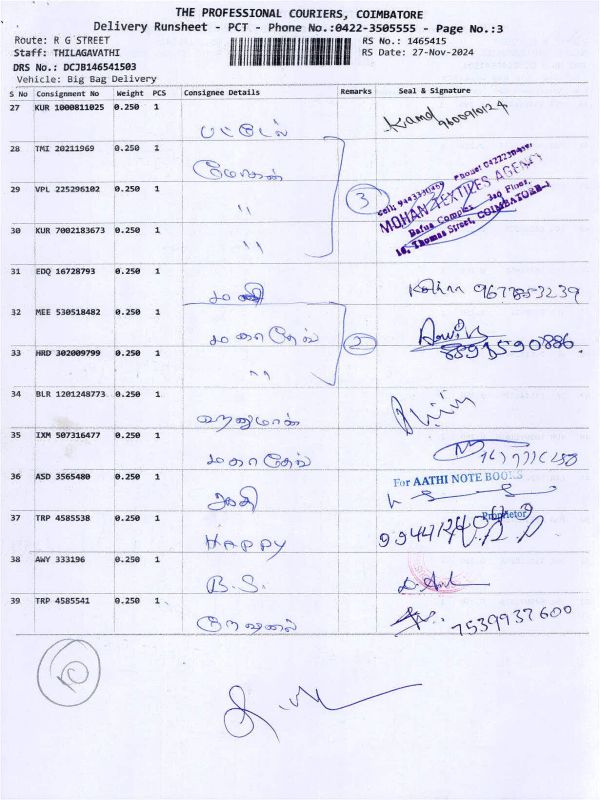 THE PROFESSIONAL COURIERS, COIMBATORE
Delivery Runsheet - PCT - Phone No.:0422-3505555 - Page No.:3
Route: R G STREET
RS No.: 1465415
Staff: THILAGAVATHI
RS Date: 27-Nov-2024
DRS No.: DCJB146541503
Vehicle: Big Bag Delivery
S No Consignment No Weight PCS Consignee Details Remarks Seal & Signature
27 KUR 1000811025 0.250 1 பட்டேல்
28 TMI 20211969 0.250 1 மோகன்
29 VPL 225296102 0.250 1 " 3
MOHAN TEXTILES AGENCY
Bafna Complex, 3rd Floor,
16, Thomas Street, COIMBATORE-1
30 KUR 7002183673 0.250 1 "
31 EDQ 16728793 0.250 1 9677853239
32 MEE 530518482 0.250 1 மகாதேவ்
33 HRD 302009799 0.250 1 " 2 8891590886.
34 BLR 1201248773 0.250 1 ஹனுமான்
35 IXM 507316477 0.250 1 மகாதேவ்
36 ASD 3565480 0.250 1
For AATHI NOTE BOOKS
Proprietor
37 TRP 4585538 0.250 1 HAPPY
38 AWY 333196 0.250 1 B.S.
39 TRP 4585541 0.250 1 7539937600